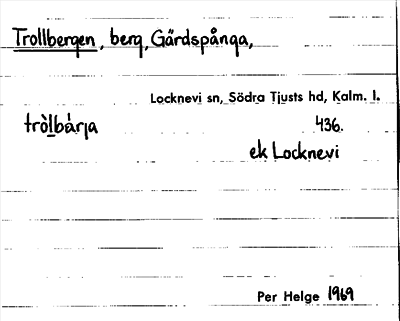 Trollbergen, berg, Gärdspånga,
Locknevi sn, Södra Tjusts hd, Kalm. l.
trò̀lbárja 436.
ek Locknevi
Per Helge 1969